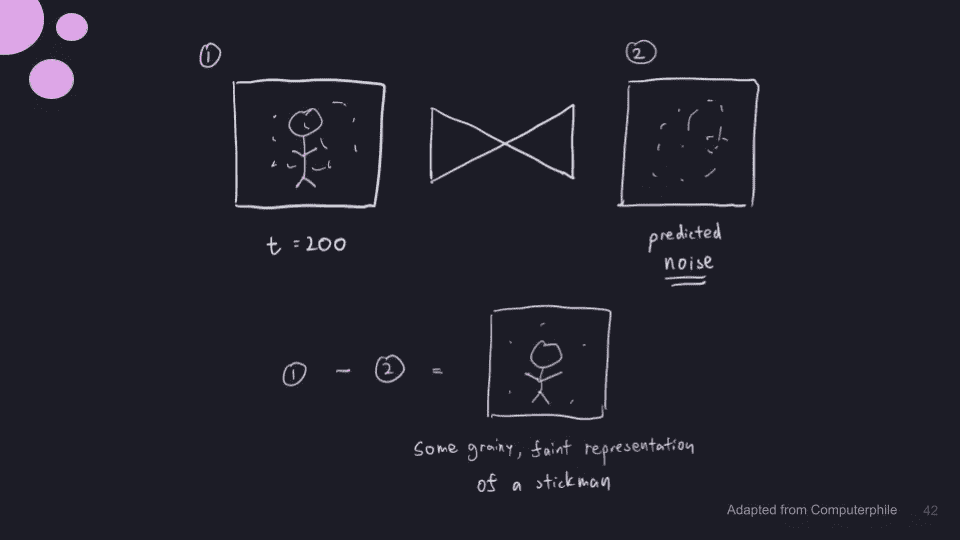 ① ②
t = 200
predicted
noise
① - ② =
Some grainy, faint representation
of a stickman
Adapted from Computerphile 42